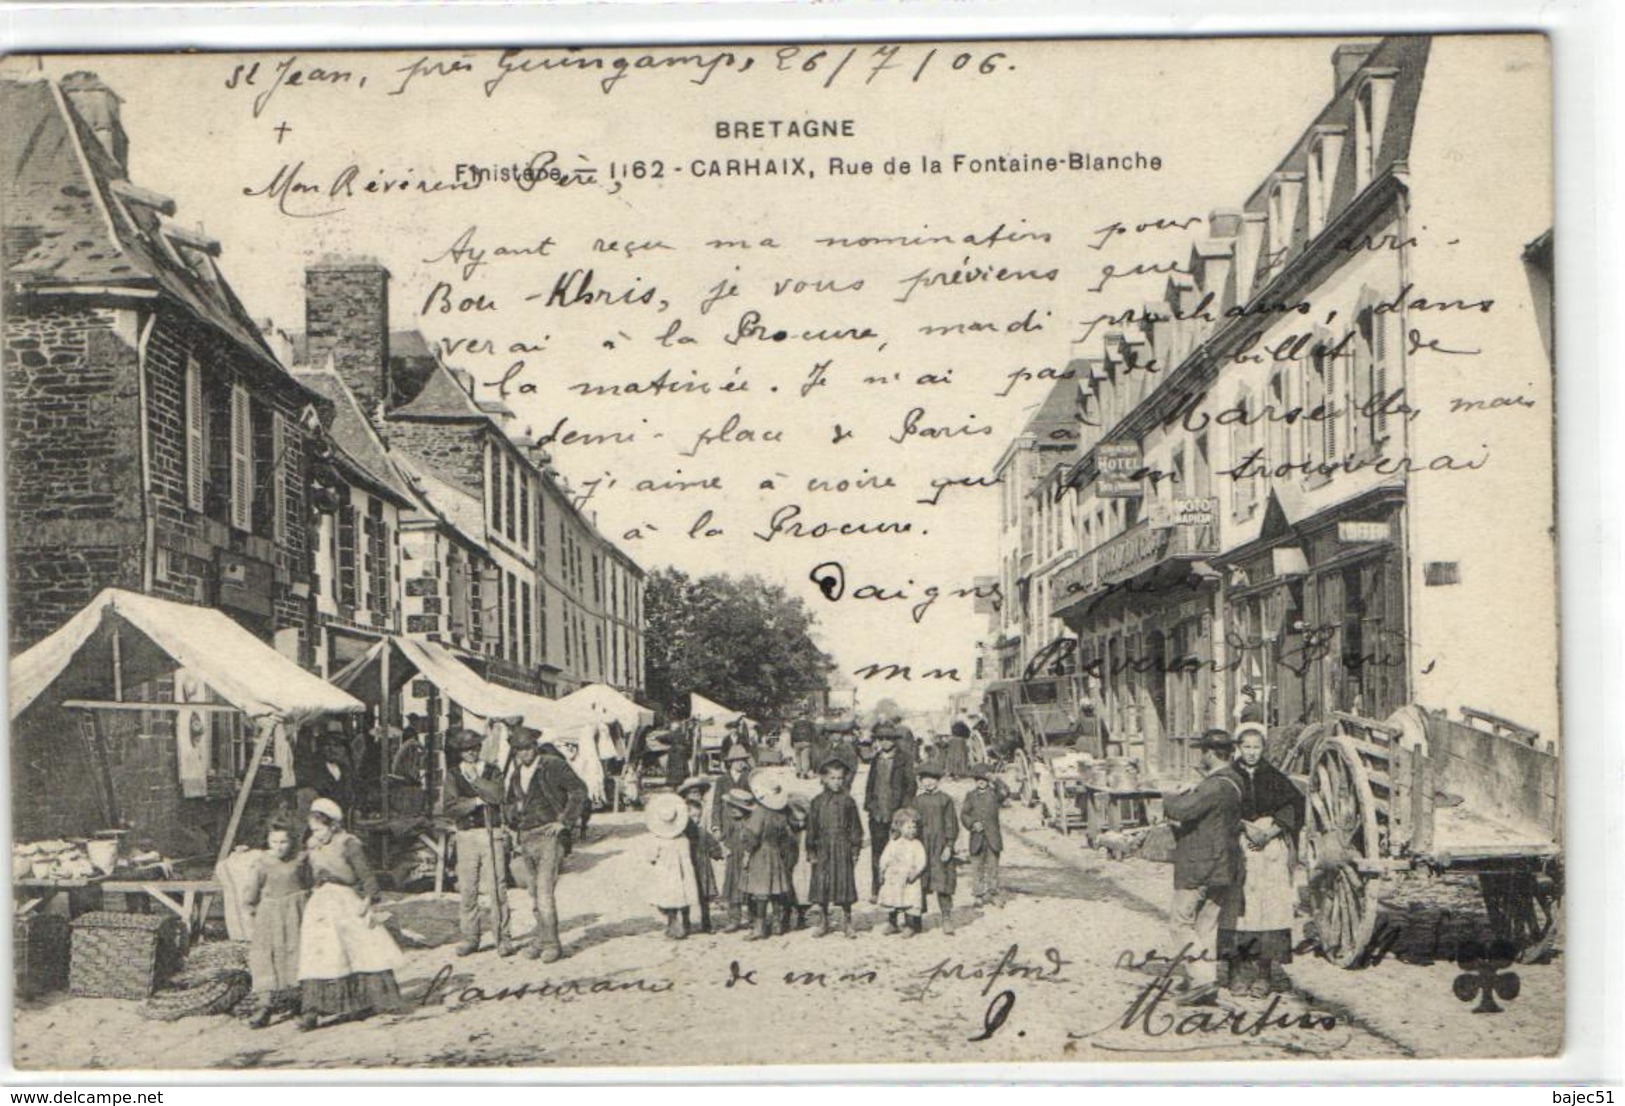 St Jean, près Guingamp, 26/7/06.
+
BRETAGNE
Finistère. — 1162 - CARHAIX, Rue de la Fontaine-Blanche
Mon Révérend Père,
Ayant reçu ma nomination pour
Bou-Khris, je vous préviens que j'arri-
verai à la Procure, mardi prochain, dans
la matinée. Je n'ai pas de billet de
demi-place de Paris à Marseille, mais
j'aime à croire que j'en trouverai
à la Procure.
HOTEL
Daignez agréer
mon Révérend Père,
l'assurance de mon profond respect en
J. Martin
www.delcampe.net
bajec51